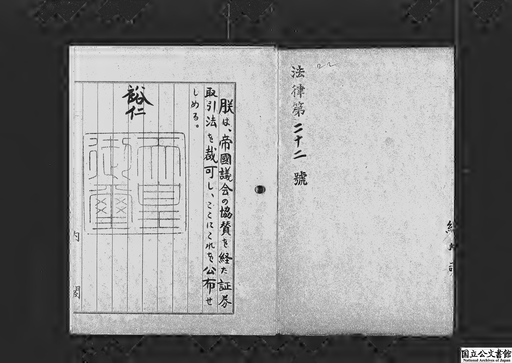 法律第二十二號
朕は、帝國議会の協賛を経た証券
取引法を裁可し、ここにこれを公布せ
しめる。
裕仁
天皇
御璽
内閣
国立公文書館
National Archives of Japan